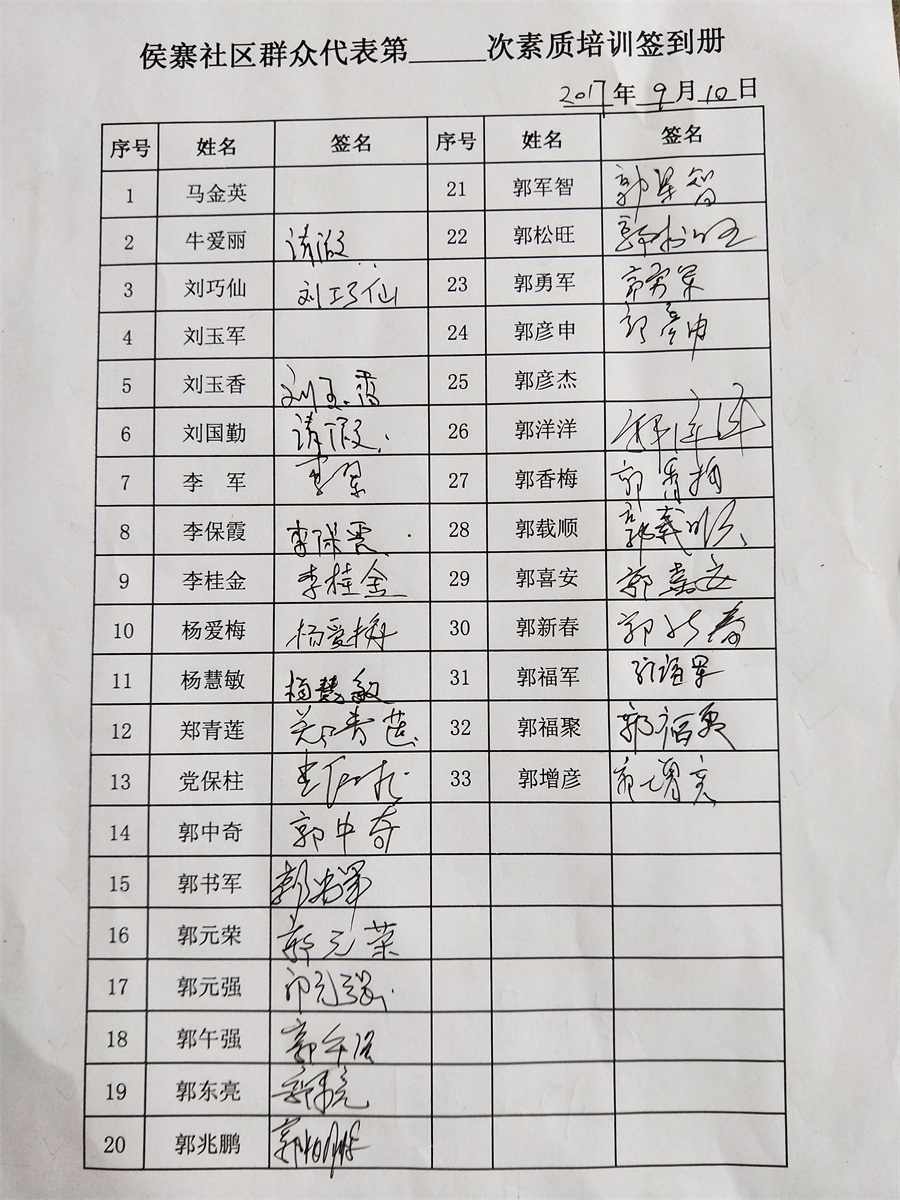 侯寨社区群众代表第_____次素质培训签到册
2017年 9月10日
序号 姓名 签名 序号 姓名 签名
1 马金英 21 郭军智 郭军智
2 牛爱丽 请假 22 郭松旺 郭松旺
3 刘巧仙 刘巧仙 23 郭勇军 郭勇军
4 刘玉军 24 郭彦申 郭彦申
5 刘玉香 刘玉香 25 郭彦杰
6 刘国勤 请假. 26 郭洋洋 郭洋洋
7 李 军 李军 27 郭香梅 郭香梅
8 李保霞 李保霞. 28 郭载顺 郭载顺
9 李桂金 李桂金 29 郭喜安 郭喜安
10 杨爱梅 杨爱梅 30 郭新春 郭新春
11 杨慧敏 杨慧敏 31 郭福军 郭福军
12 郑青莲 郑青莲 32 郭福聚 郭福聚
13 党保柱 党保柱 33 郭增彦 郭增彦
14 郭中奇 郭中奇
15 郭书军 郭书军
16 郭元荣 郭元荣
17 郭元强 郭元强.
18 郭午强 郭午强
19 郭东亮 郭东亮
20 郭兆鹏